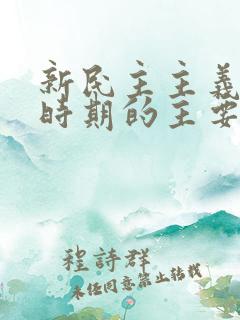 新民主主義
時期的主要
程詩群
未经同意禁止转载